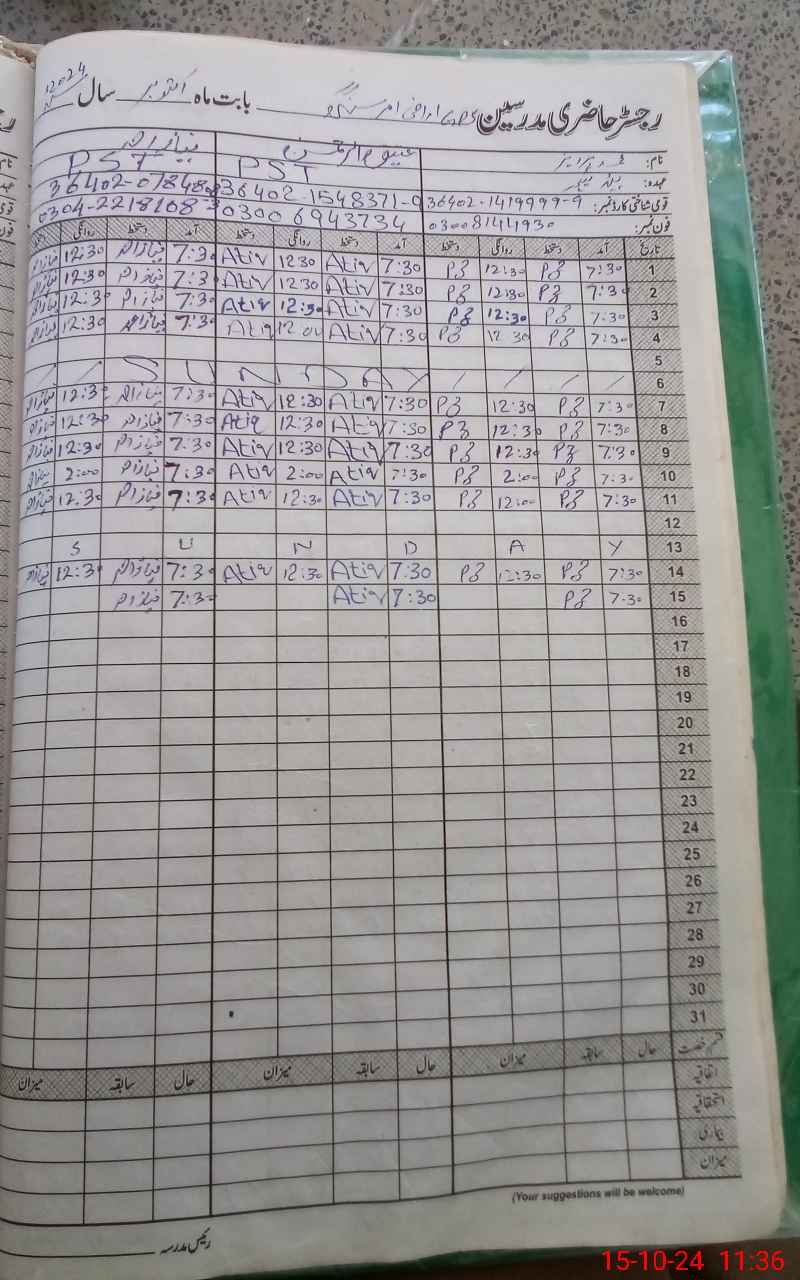 رجسٹر حاضری مدرسین GPS اراضی امر سنگھ بابت ماہ اکتوبر سال 2024
نام: عتیق الرحمٰن نیاز احمد
عہدہ: PST PST
قومی شناختی کارڈ نمبر: 36402-1419999-9 36402-1548371-9 36402-07848
فون نمبر: 03008144930 03006943734 0304-2218108
تاریخ آمد دستخط روانگی دستخط آمد دستخط روانگی دستخط آمد دستخط روانگی دستخط
1 7:30 12:30 7:30 Atiq 12:30 Atiq 7:30 نیاز احمد 12:30 نیاز احمد
2 7:30 12:30 7:30 Atiq 12:30 Atiq 7:30 نیاز احمد 12:30 نیاز احمد
3 7:30 12:30 7:30 Atiq 12:30 Atiq 7:30 نیاز احمد 12:30 نیاز احمد
4 7:30 12:30 7:30 Atiq 12:00 Atiq 7:30 نیاز احمد 12:30 نیاز احمد
5
6 / / S U N D A Y / / / /
7 7:30 12:30 7:30 Atiq 12:30 Atiq 7:30 نیاز احمد 12:30 نیاز احمد
8 7:30 12:30 7:30 Atiq 12:30 Atiq 7:30 نیاز احمد 12:30 نیاز احمد
9 7:30 12:30 7:30 Atiq 12:30 Atiq 7:30 نیاز احمد 12:30 نیاز احمد
10 7:30 2:00 7:30 Atiq 2:00 Atiq 7:30 نیاز احمد 2:00 نیاز احمد
11 7:30 12:00 7:30 Atiq 12:30 Atiq 7:30 نیاز احمد 12:30 نیاز احمد
12
13 S U N D A Y
14 7:30 12:30 7:30 Atiq 12:30 Atiq 7:30 نیاز احمد 12:30 نیاز احمد
15 7:30 7:30 Atiq 7:30 نیاز احمد
16
17
18
19
20
21
22
23
24
25
26
27
28
29
30
31
قسم رخصت حال سابقہ میزان حال سابقہ میزان حال سابقہ میزان
اتفاقیہ
استحقاقیہ
بیماری
میزان
(Your suggestions will be welcome)
رئیس مدرسہ
15-10-24 11:36